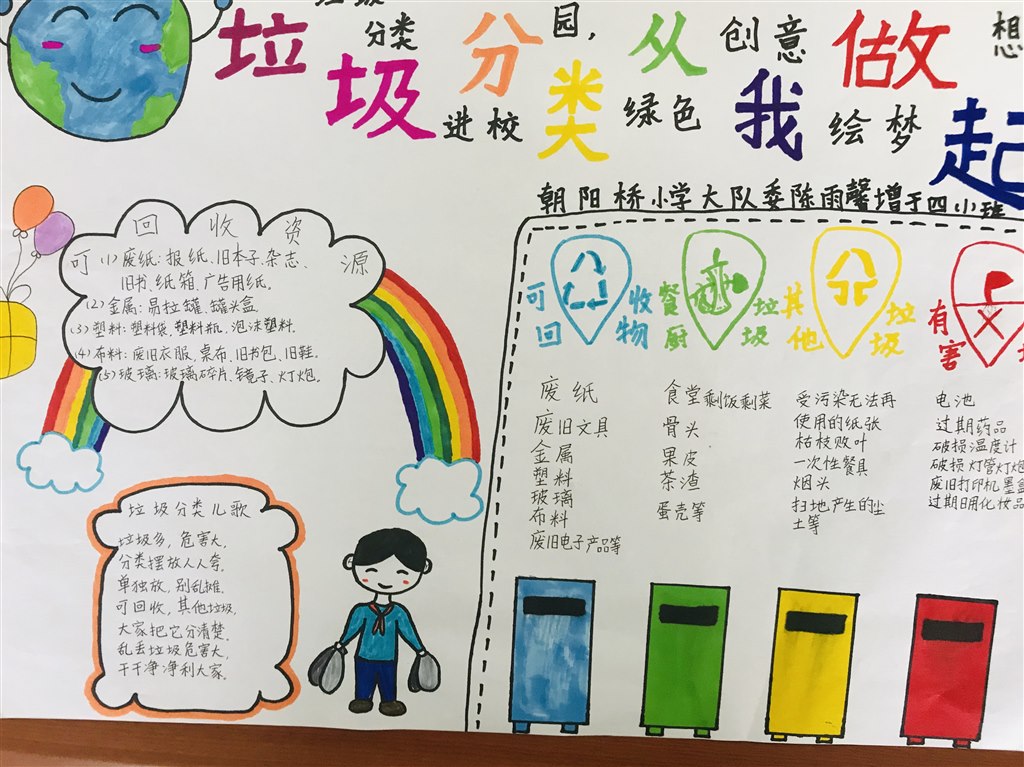 垃圾分类从我做起
分类
进校
园,
绿色
创意
绘梦
想
朝阳桥小学大队委陈雨馨增于四小班
可回收资源
(1)废纸:报纸、旧本子、杂志、
旧书、纸箱、广告用纸。
(2)金属:易拉罐、罐头盒。
(3)塑料:塑料袋、塑料瓶、泡沫塑料。
(4)布料:废旧衣服、桌布、旧书包、旧鞋。
(5)玻璃:玻璃碎片、镜子、灯炮。
垃圾分类儿歌
垃圾多,危害大,
分类摆放人人夸。
单独放,别乱摊。
可回收,其他垃圾,
大家把它分清楚。
乱丢垃圾危害大,
干干净净利大家。
可回收物
废纸
废旧文具
金属
塑料
玻璃
布料
废旧电子产品等
餐厨垃圾
食堂剩饭剩菜
骨头
果皮
茶渣
蛋壳等
其他垃圾
受污染无法再
使用的纸张
枯枝败叶
一次性餐具
烟头
扫地产生的尘
土等
有害
电池
过期药品
破损温度计
破损灯管灯炮
废旧打印机墨盒
过期日用化妆品